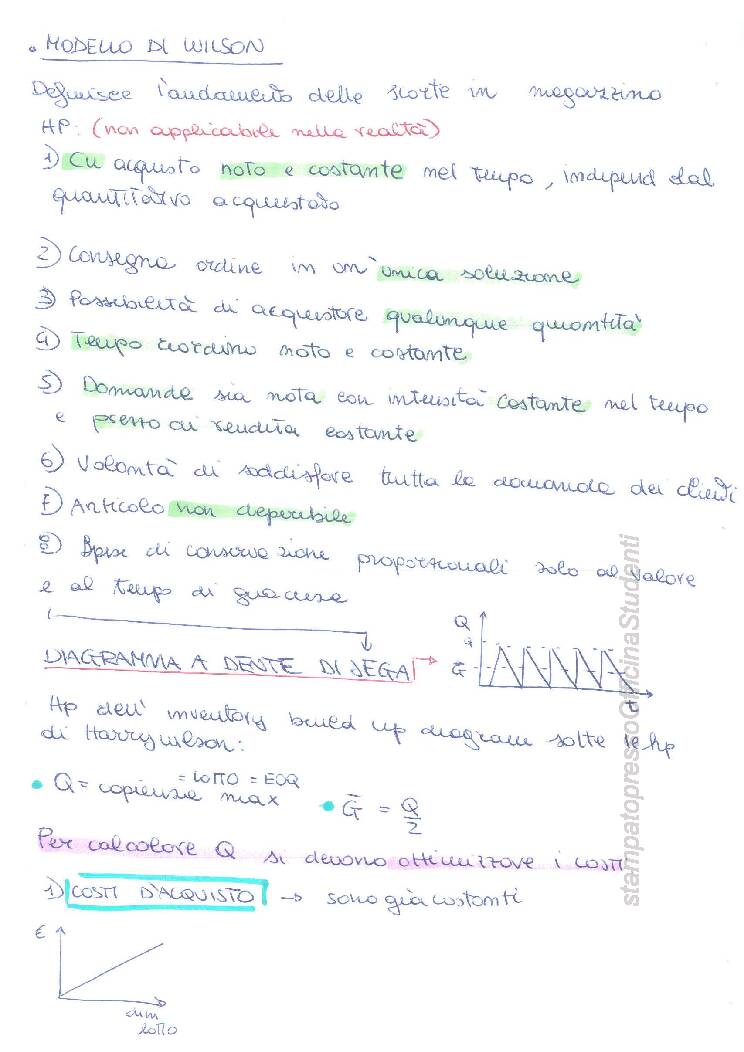 • MODELLO DI WILSON
Definisce l'andamento delle scorte in magazzino
HP: (non applicabile nella realtà)
1) Cu acquisto noto e costante nel tempo, independ dal
quantitativo acquistato
2) Consegna ordine in un'unica soluzione
3) Possibilità di acquistare qualunque quantità
4) Tempo riordino noto e costante
5) Domanda sia nota con intensità costante nel tempo
e prezzo di vendita costante
6) Volontà di soddisfare tutta la domanda dei clienti
7) Articolo non deperibile
8) Spese di conservazione proporzionali solo al valore
e al tempo di giacenza
DIAGRAMMA A DENTE DI SEGA
Q
q
G
t
Hp dell' inventory build up diagram sotto le hp
di Harry Wilson:
• Q = copienza max
= LOTTO = EOQ
• G̅ = Q/2
Per calcolare Q si devono ottimizzare i costi
1) COSTI D'ACQUISTO → sono già costanti
€
dim
lotto
stampatopressoOfficinaStudenti